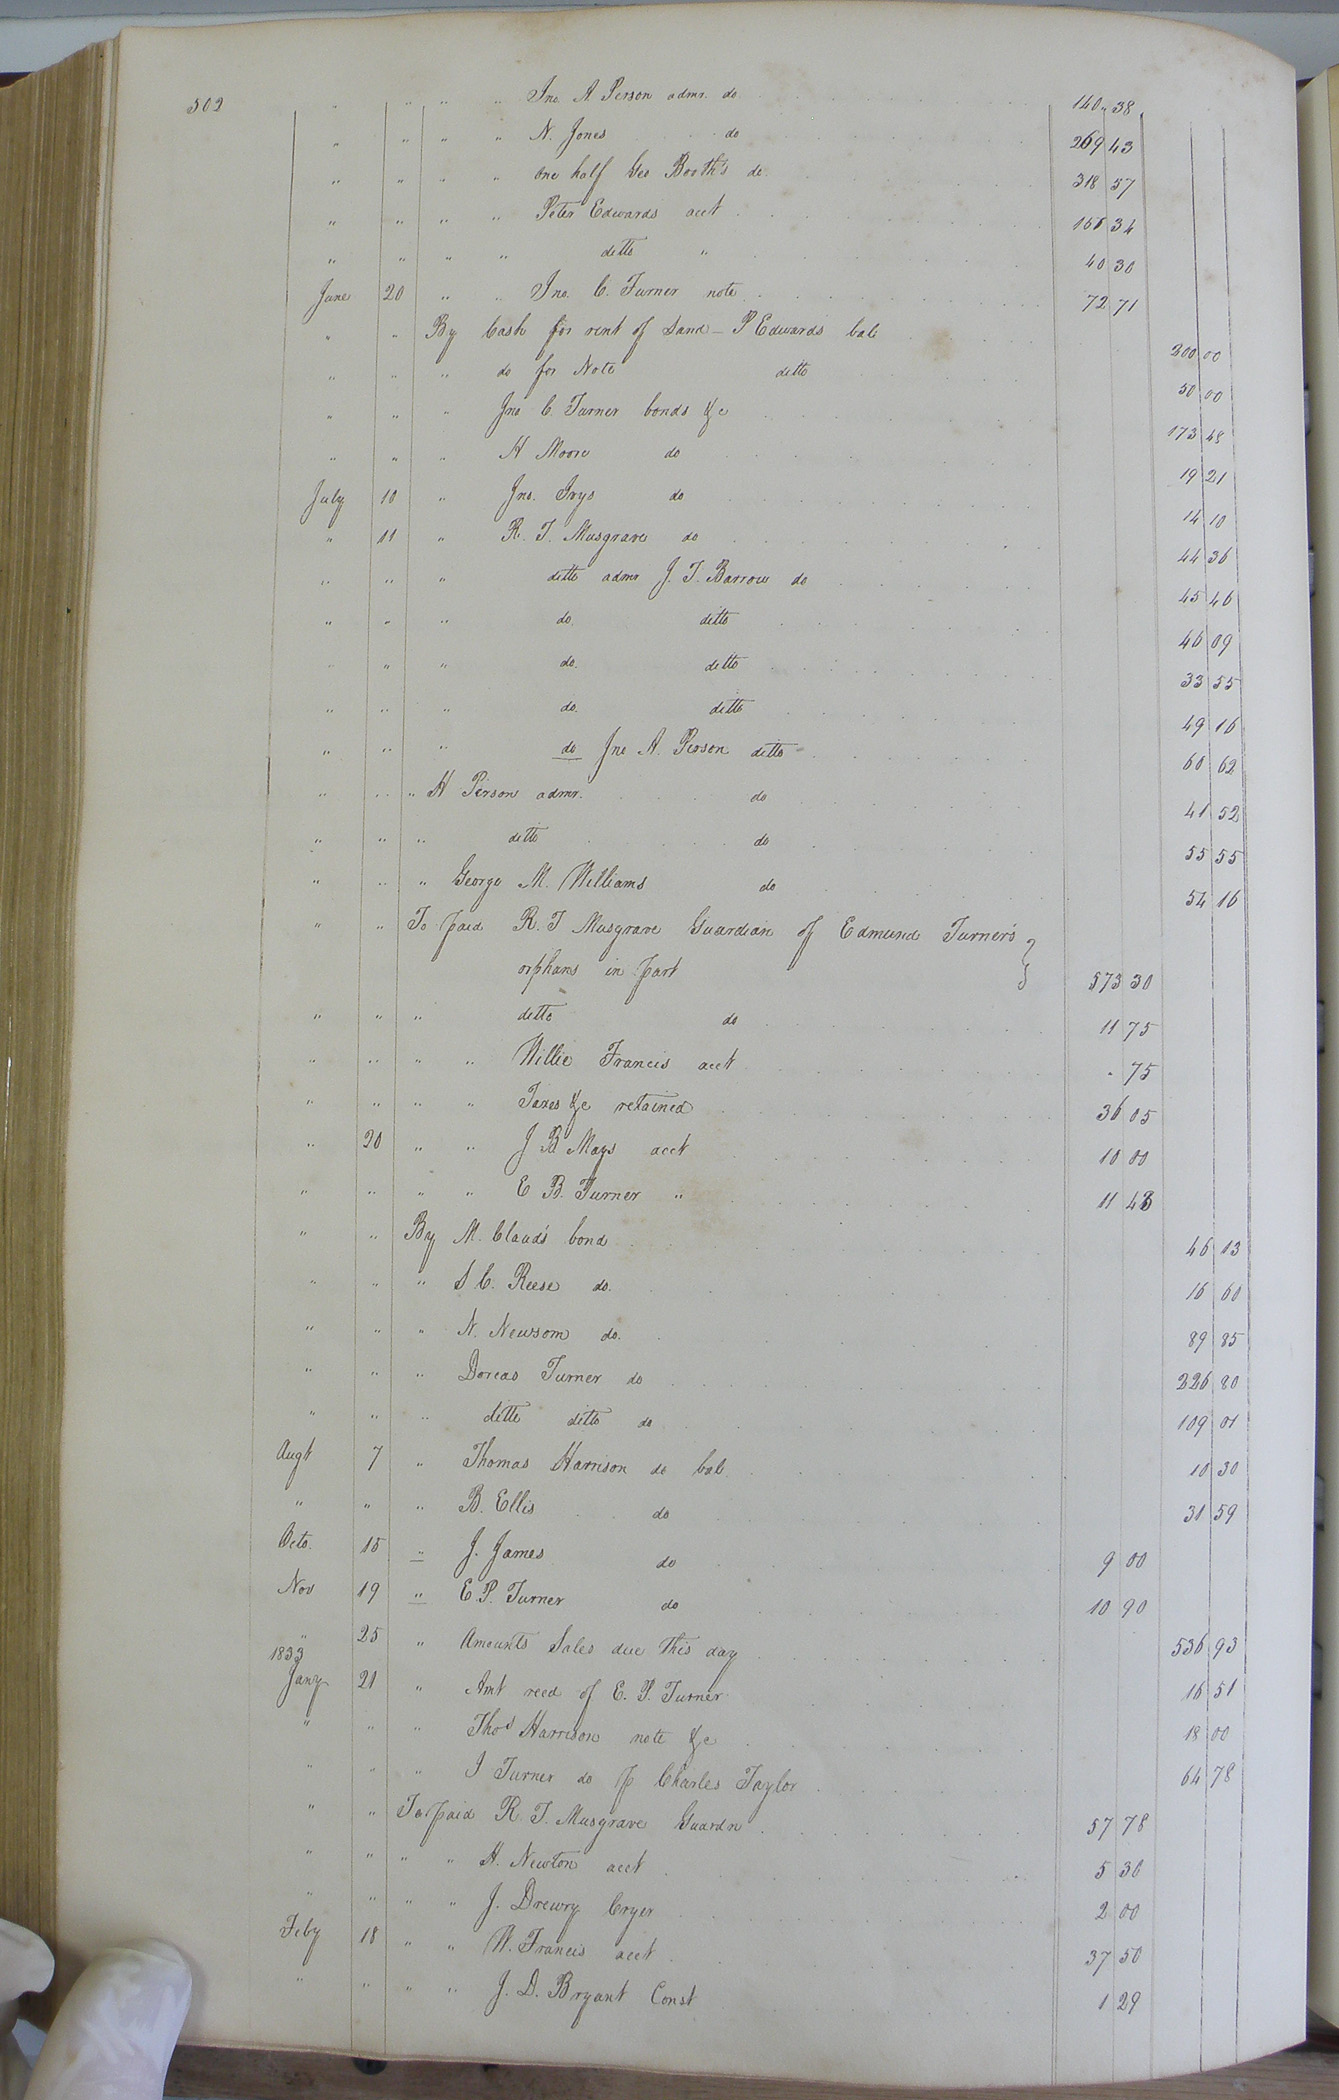 502 " " " " Jno. A Person admr. do 140 38
" " " " N. Jones do 269 43
" " " " one half Geo Booth's do 318 57
" " " " Peter Edwards acct 156 34
" " " " ditto " 40 30
June 20 " " Jno. C. Turner note 72 71
" " By Cash for rent of Land - P Edwards bal: 200 00
" " " do for Note ditto 50 00
" " " Jno C. Turner bonds &c 173 48
" " " H Moore do 19 21
July 10 " Jno. Ivys do 14 10
" 11 " R. T. Musgrave do 44 36
" " " ditto admr J. T. Barrow do 45 46
" " " do. ditto 46 09
" " " do. ditto 33 55
" " " do. ditto 49 16
" " " do Jno A. Person ditto 60 62
" " " H Person admr. do 41 52
" " " ditto do 55 55
" " " George M. Williams do 54 16
" " To paid R. T Musgrave Guardian of Edmund Turner's }
orphans in part 573 30
" " " ditto do 11 75
" " " " Willie Francis acct . 75
" " " " Taxes &c retained 36 05
" 20 " " J B Mays acct 10 00
" " " " E B. Turner " 11 43
" " By M. Claud's bond 46 13
" " " S C. Reese do. 16 60
" " " N. Newsom do. 89 85
" " " Dorcas Turner do 226 80
" " " ditto ditto do 109 01
Augt 7 " Thomas Harrison do bal. 10 30
" " " B. Ellis do 31 59
Octo. 15 " J. James do 9 00
Nov 19 " E. P. Turner do 10 90
" 25 " Amounts Sales due this day 536 93
1833
Jany 21 " Amt recd of E. P. Turner 16 51
" " " Thos Harrison note &c 18 00
" " " J Turner do p Charles Taylor 64 78
" " To paid R. T. Musgrave Guardn 57 78
" " " " H. Newton acct 5 36
" " " " J. Drewry Cryer 2 00
Feby 18 " " W. Francis acct 37 50
" " " " J. D. Bryant Const 1 29